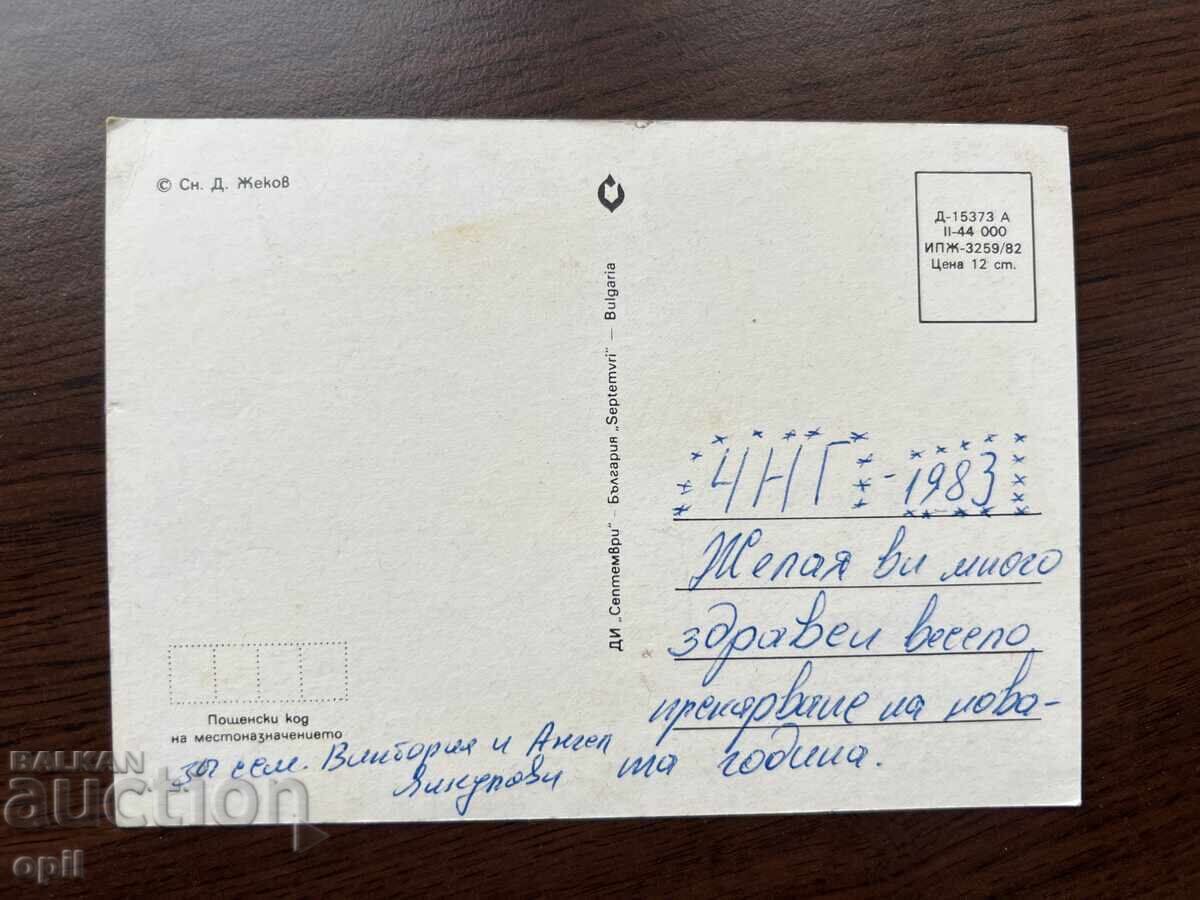 © Сн. Д. Жеков
Д-15373 А
II-44 000
ИПЖ-3259/82
Цена 12 ст.
ДИ „Септември" – България „Septemvri" – Bulgaria
ЧНГ - 1983
Желая ви много
здраве и весело
прекарване на нова-
та година.
Пощенски код
на местоназначението
сем. Виктория и Ангел
BALKAN
auction
opil